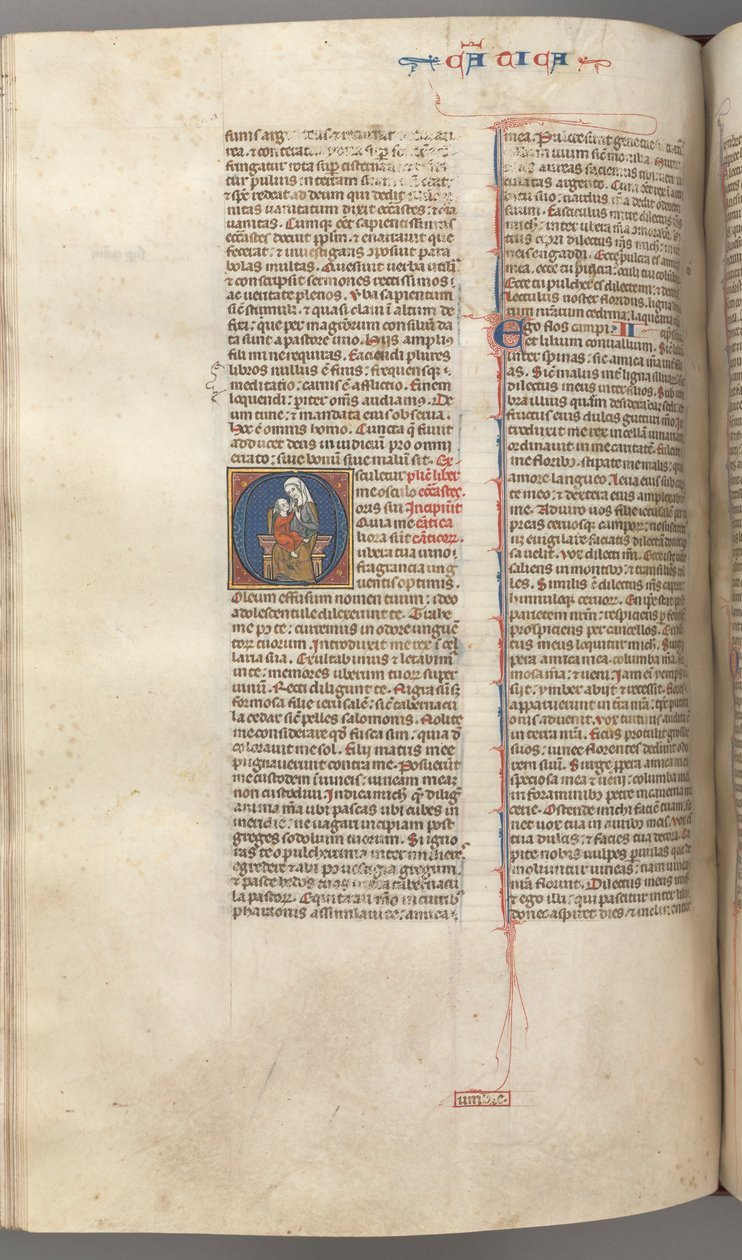 CANTICA
funis argenteus & recurrat
rea. & conterat super fontem &
fringatur rota sup cisternam
tur puluis in terram suam
& sps redeat ad deum qui dedit
nitas uanitatum dixit eccłastes: & oia
uanitas. Cumque eet sapientissimus
eccłastes docuit pplm. & enarrauit que
fecerat: & inuestigans 9posuit para
bolas multas. Quesiuit uerba utilia
& conscripsit sermones rectissimos:
ac ueritate plenos. Vba sapientum
sic stimuli. & quasi claui i altum de
fixi: que per magrorum consiliū da
ta sunt a pastore uno. Hiis amplius
fili mi ne requiras. Faciendi plures
libros nullus ē finis: frequensque
meditatio: carnis ē afflictio. Finem
loquendi: pariter oms audiamus. De
um time: & mandata eius obserua.
Hoc ē omnis homo. Cuncta que fiunt
adducet deus in iudiciū pro omni
errato: siue bonū siue malū sit. Ex
Osculetur plic liber
me osculo eccłastes.
oris sui Incipiūt
Quia me cātica
liora sūt cāticorz.
ubera tua uino:
fragrancia ung
uentis optimis.
Oleum effusum nomen tuum: ideo
adolescentule dilexerunt te. Trahe
me po te: curremus in odore unguē
torz tuorum. Introduxit me rex i cel
laria sua. Exultabimus & letabim
in te: memores uberum tuorz super
uinū. Recti diligunt te. Nigra sū sz
formosa filie ierusalē: sic tabernacu
la cedar sic pelles salomonis. Nolite
me considerare qd fusca sim: quia d
colorauit me sol. Filii matris mee
pugnauerunt contra me. Posuerūt
me custodem i uineis: uineam meaz
non custodiui. Indica michi quē diligit
anima mea ubi pascas ubi cubes in
meridie: ne uagari incipiam post
greges sodalium tuorum. Si igno
ras te o pulcherrima inter mulieres
egredere & abi po uestigia gregum:
& pasce hedos tuos iuxta tabernacu
la pastorz. Equitatui meo in curribz
pharaonis assimilaui te: amica
mea. Pulcre sunt gene tue
tuum sic monilia. Muren
las aureas faciemus tibi uermi
culatas argento. Cum eet rex i accu
bitu suo: nardus mea dedit odorem
suum. Fasciculus mirre dilectus ms
michi: inter ubera mea 9morabitur
cypri dilectus ms michi: in ui
neis engaddi. Ecce pulcra es amica
mea. ecce tu pulcra: oculi tui columbarum
Ecce tu pulcher es dilecte mi: & decorus
Lectulus noster floridus. ligna domo
rum nrarum cedrina: laquearia
Ego flos campi: II cipressina
et lilium conuallium. Sicut lilium
inter spinas: sic amica mea int fili
as. Sic malus int ligna siluarum: sic
dilectus meus inter filios. Sub um
bra illius quam desideraram sedi: &
fructus eius dulcis gutturi meo. In
troduxit me rex in cellam uinariam
ordinauit in me caritatē. Fulcite
me floribz. stipate me malis: quia
amore langueo. Leua eius sub capi
te meo: & dextera eius amplexabitur
me. Adiuro uos filie ierusalē per ca
preas ceruosque camporz: ne suscitetis
ne euigilare faciatis dilectā donec ip
sa uelit. Vox dilecti mi. Ecce iste uenit
saliens in montibz: & transiliens col
les. Similis ē dilectus ms capree:
hinnuloque ceruorz. En ipe stat post
parietem nrm: respiciens p fenestras
prospiciens per cancellos. En dilec
tus meus loquitur michi. Surge
pera amica mea. columba mea. for
mosa mea: & ueni. Iam eni yemps tran
siit: ymber abiit & recessit. Flores
apparuerunt in tra nra: tps putati
onis aduenit. Vox turturis audita ē
in terra nra. Ficus protulit grossos
suos: uinee florentes dederūt odo
rem suū. Surge ppera amica mea
speciosa mea & ueni: columba mea
in foraminibz petre in cauerna ma
cerie. Ostende michi faciē tuam. so
net uox tua in auribz meis. Vox eni
tua dulcis: & facies tua decora. Ca
pite nobis uulpes paruulas que de
moliuntur uineas: nam uinea
nra floruit. Dilectus meus michi
& ego illi: qui pascitur inter lilia
donec aspiret dies. & inclinentur
umbre.